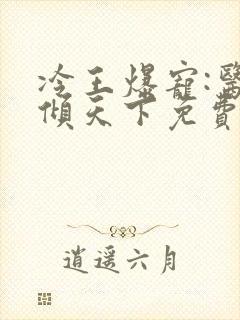 冷王爆寵:醫
傾天下免費
逍遙六月